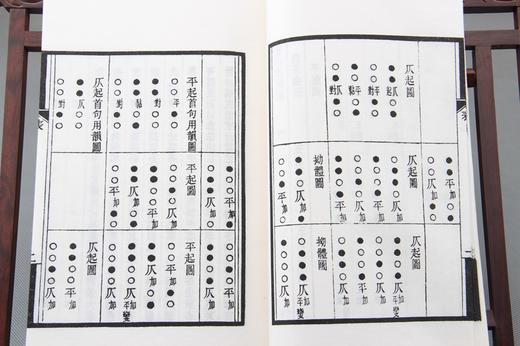 仄起圖
仄起
平對
平黏
仄對
平加
仄加
仄起圖
仄加
平加
平加
仄加
拗體圖
仄加
平加
仄起圖
仄加平變
平加
平加
仄加
拗體圖
平加
仄加
平起首句用韻圖
平
對
黏
對
仄起首句用韻圖
仄
對
平加
仄加
平起圖
仄加
平加
平加
仄加
平加
仄加
平起圖
平加
仄加
仄加平變
平加
仄起圖
平加
仄加